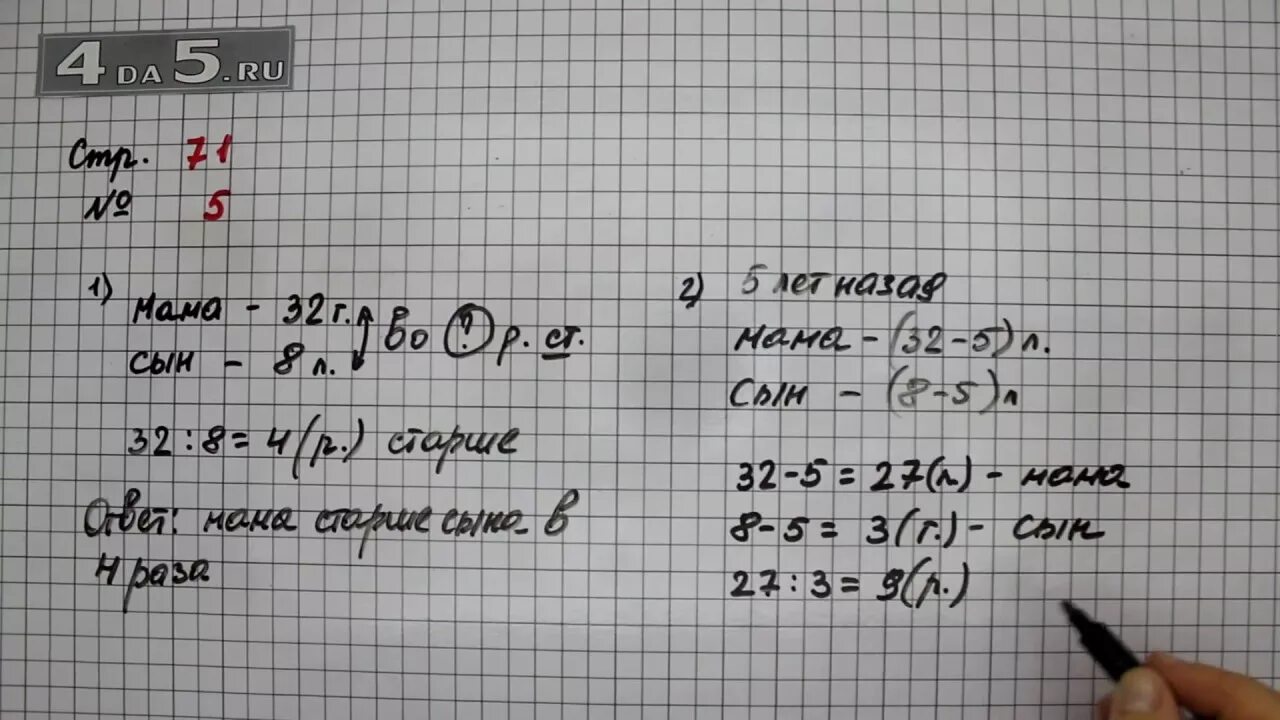 4DA5.RU
Стр. 71
№ 5
1)
мама - 32 г.
сын - 8 л.
во ? р. ст.
32 : 8 = 4 (р.) старше
Ответ: мама старше сына в
4 раза
2) 5 лет назад
мама - (32 - 5) л.
сын - (8 - 5) л
32 - 5 = 27 (л) - мама
8 - 5 = 3 (г.) - сын
27 : 3 = 9 (р.)